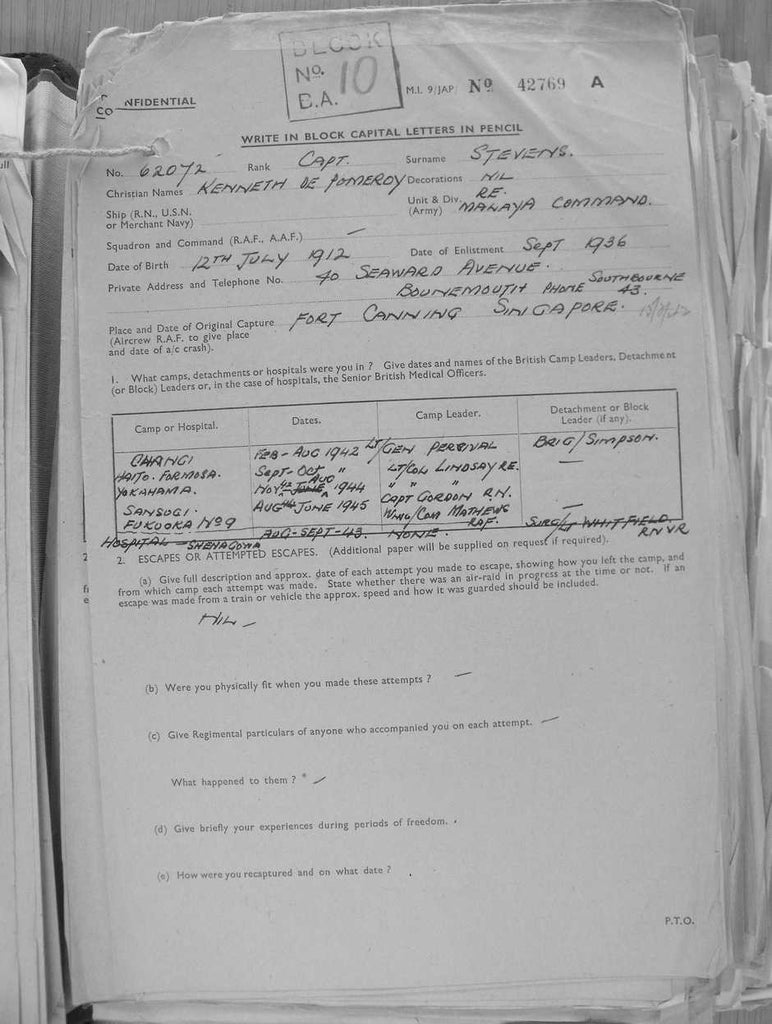 BLOCK
No. 10
B.A.
M.I. 9/JAP/ No 42769 A
CONFIDENTIAL
WRITE IN BLOCK CAPITAL LETTERS IN PENCIL
No. 62072 Rank CAPT. Surname STEVENS.
Christian Names KENNETH DE POMEROY Decorations NIL
Ship (R.N., U.S.N. or Merchant Navy) Unit & Div. (Army) RE. MALAYA COMMAND.
Squadron and Command (R.A.F., A.A.F.) —
Date of Birth 12TH JULY 1912 Date of Enlistment SEPT 1936
Private Address and Telephone No. 40 SEAWARD AVENUE.
BOUNEMOUTH PHONE SOUTHBOURNE 43.
Place and Date of Original Capture FORT CANNING SINGAPORE.
(Aircrew R.A.F. to give place
and date of a/c crash).
1. What camps, detachments or hospitals were you in ? Give dates and names of the British Camp Leaders, Detachment
(or Block) Leaders or, in the case of hospitals, the Senior British Medical Officers.
Camp or Hospital. Dates. Camp Leader. Detachment or Block Leader (if any).
CHANGI FEB - AUG 1942 LT/GEN PERCIVAL BRIG/SIMPSON.
HAITO. FORMOSA. SEPT - OCT " LT/COL LINDSAY RE. —
YOKAHAMA. NOV 42 - JUNE AUG 1944 " " "
SANSOGI. AUG 44 JUNE 1945 CAPT GORDON R.N. —
FUKUOKA No 9 WING/COM MATHEWS RAF.
HOSPITAL SHENAGOWA AUG - SEPT - 43. NONE. SURG/LT WHITFIELD. RNVR
2. ESCAPES OR ATTEMPTED ESCAPES. (Additional paper will be supplied on request if required).
(a) Give full description and approx. date of each attempt you made to escape, showing how you left the camp, and
from which camp each attempt was made. State whether there was an air-raid in progress at the time or not. If an
escape was made from a train or vehicle the approx. speed and how it was guarded should be included.
NIL —
(b) Were you physically fit when you made these attempts ? —
(c) Give Regimental particulars of anyone who accompanied you on each attempt. —
What happened to them ? —
(d) Give briefly your experiences during periods of freedom.
(e) How were you recaptured and on what date ?
P.T.O.